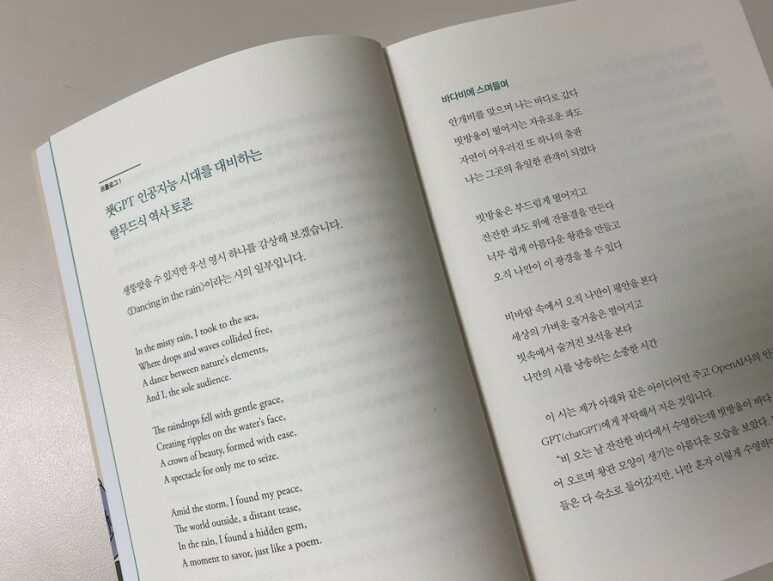 프롤로그 1
챗GPT 인공지능 시대를 대비하는
탈무드식 역사 토론
생뚱맞을 수 있지만 우선 영시 하나를 감상해 보겠습니다.
〈Dancing in the rain〉이라는 시의 일부입니다.
In the misty rain, I took to the sea,
Where drops and waves collided free,
A dance between nature's elements,
And I, the sole audience.
The raindrops fell with gentle grace,
Creating ripples on the water's face,
A crown of beauty, formed with ease,
A spectacle for only me to seize.
Amid the storm, I found my peace,
The world outside, a distant tease,
In the rain, I found a hidden gem,
A moment to savor, just like a poem.
바다비에 스며들며
안개비를 맞으며 나는 바다로 갔다
빗방울이 떨어지는 자유로운 파도
자연이 어우러진 또 하나의 춤판
나는 그곳의 유일한 관객이 되었다
빗방울은 부드럽게 떨어지고
잔잔한 파도 위에 잔물결을 만든다
너무 쉽게 아름다운 왕관을 만들고
오직 나만이 이 광경을 볼 수 있다
비바람 속에서 오직 나만이 평안을 본다
세상의 가벼운 즐거움은 멀어지고
빗속에서 숨겨진 보석을 본다
나만의 시를 낭송하는 소중한 시간
이 시는 제가 아래와 같은 아이디어만 주고 OpenAI사의 인
GPT(chatGPT)에게 부탁해서 지은 것입니다.
"비 오는 날 잔잔한 바다에서 수영하는데 빗방울이 바다
어 오르며 왕관 모양이 생기는 아름다운 모습을 보았다.
들은 다 숙소로 들어갔지만, 나만 혼자 이렇게 수영하면